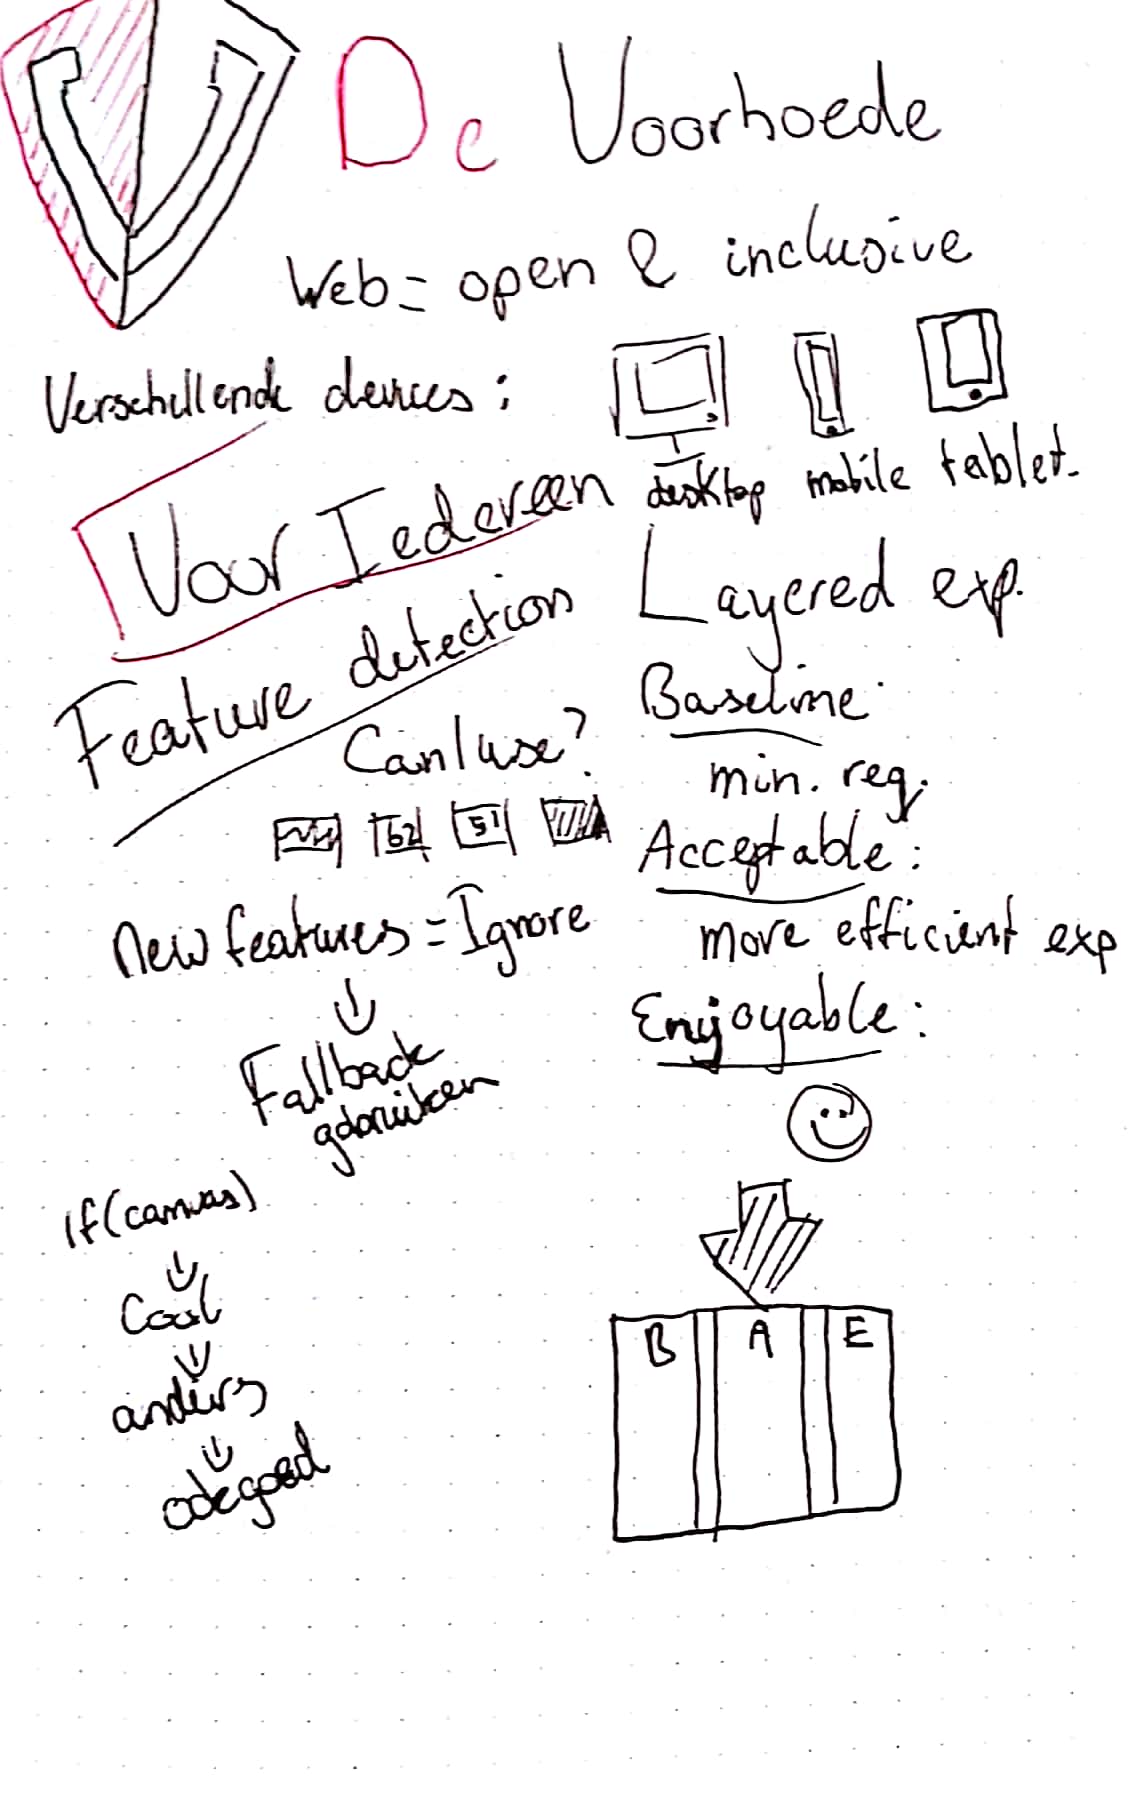 De Voorhoede
Web = open & inclusive
Verschillende devices:
desktop mobile tablet.
Voor Iedereen
Feature detection
Can I use?
62 51
New features = Ignore
Fallback
gebruiken
If(canvas)
Cool
anders
ook goed
Layered exp.
Baseline:
min. req.
Acceptable:
more efficient exp
Enjoyable:
B A E